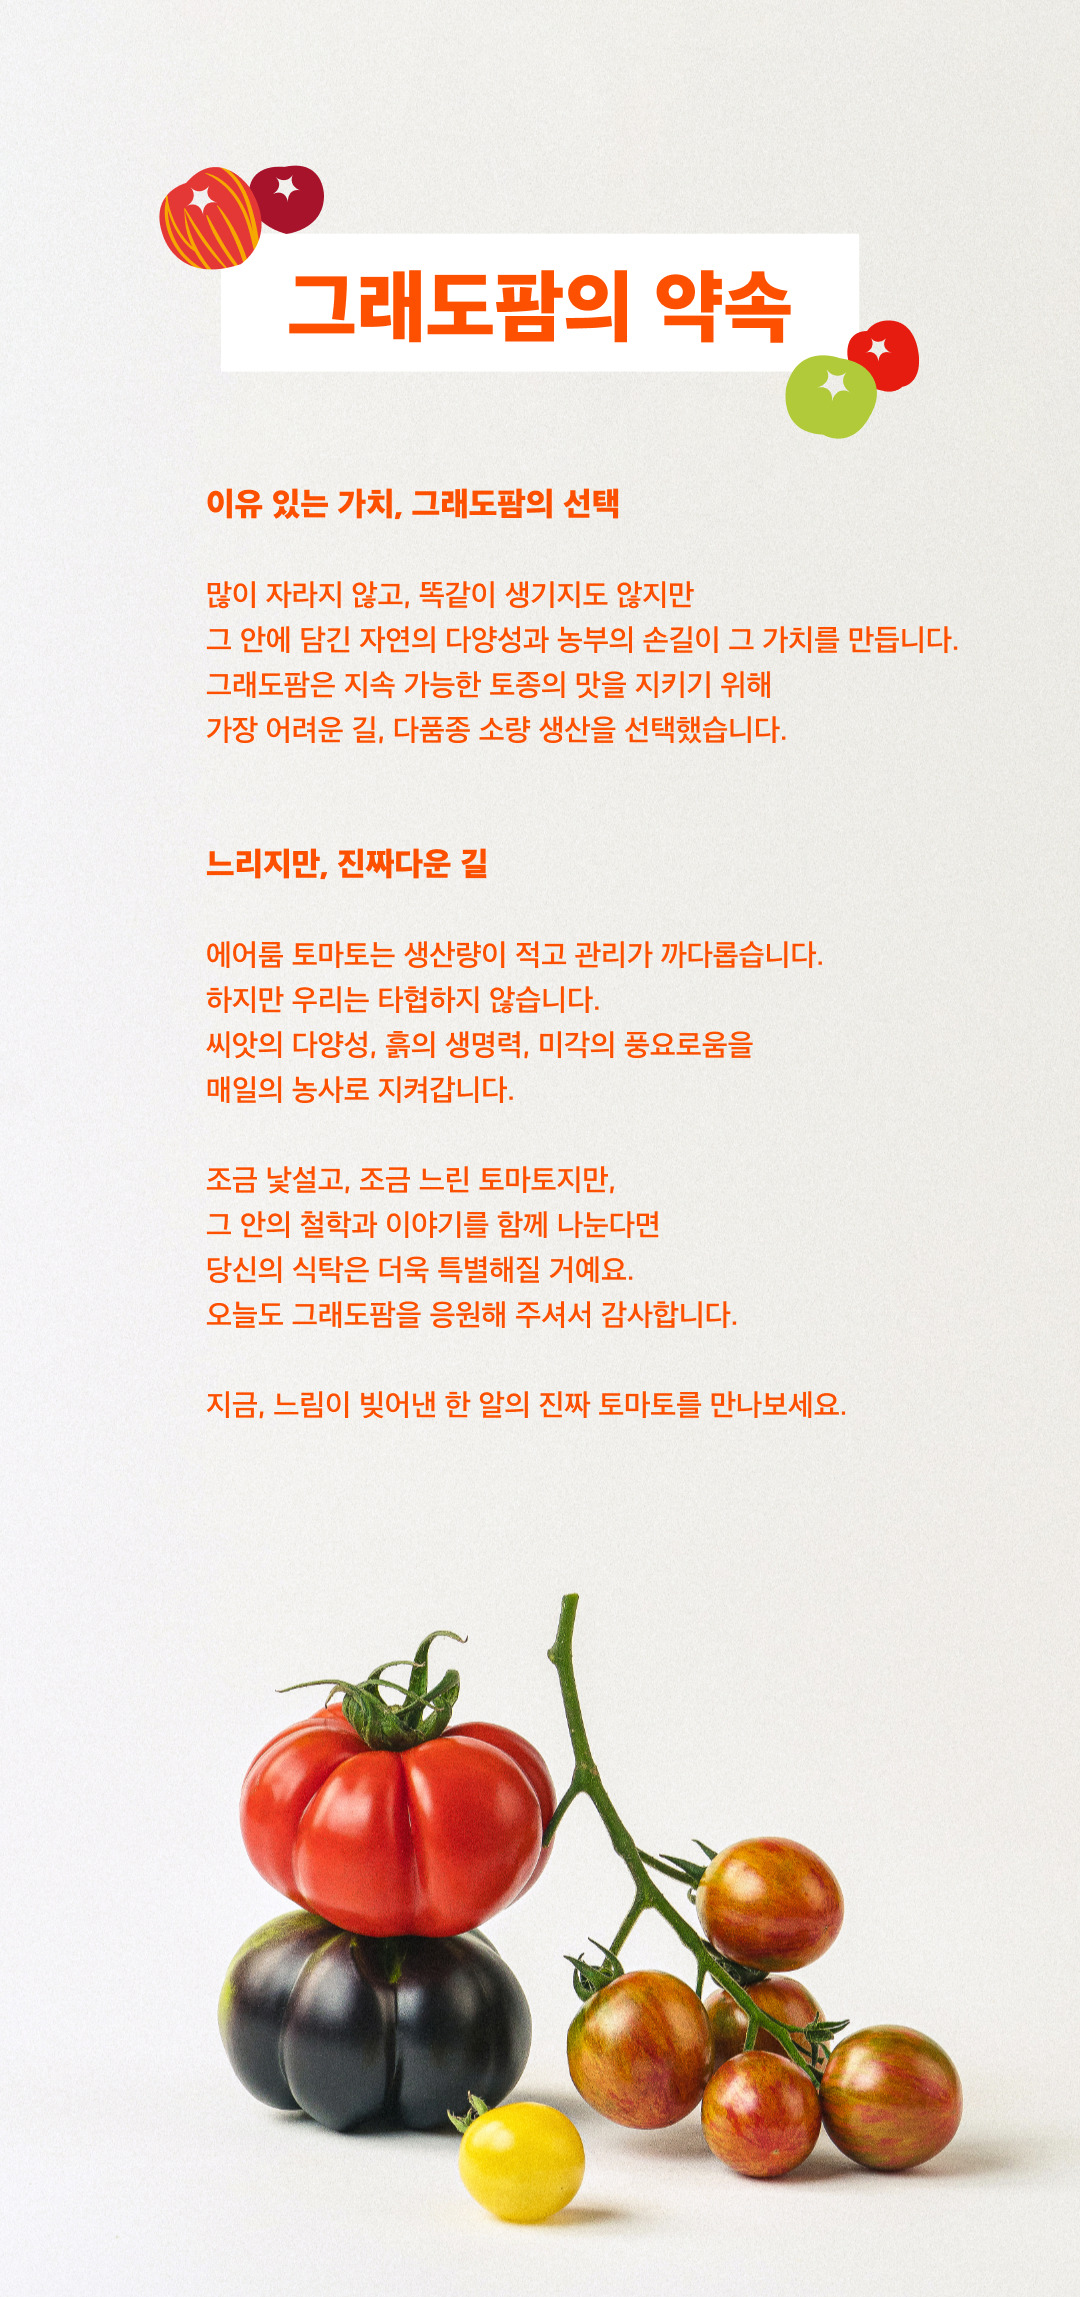 그래도팜의 약속
이유 있는 가치, 그래도팜의 선택
많이 자라지 않고, 똑같이 생기지도 않지만
그 안에 담긴 자연의 다양성과 농부의 손길이 그 가치를 만듭니다.
그래도팜은 지속 가능한 토종의 맛을 지키기 위해
가장 어려운 길, 다품종 소량 생산을 선택했습니다.
느리지만, 진짜다운 길
에어룸 토마토는 생산량이 적고 관리가 까다롭습니다.
하지만 우리는 타협하지 않습니다.
씨앗의 다양성, 흙의 생명력, 미각의 풍요로움을
매일의 농사로 지켜갑니다.
조금 낯설고, 조금 느린 토마토지만,
그 안의 철학과 이야기를 함께 나눈다면
당신의 식탁은 더욱 특별해질 거예요.
오늘도 그래도팜을 응원해 주셔서 감사합니다.
지금, 느림이 빚어낸 한 알의 진짜 토마토를 만나보세요.